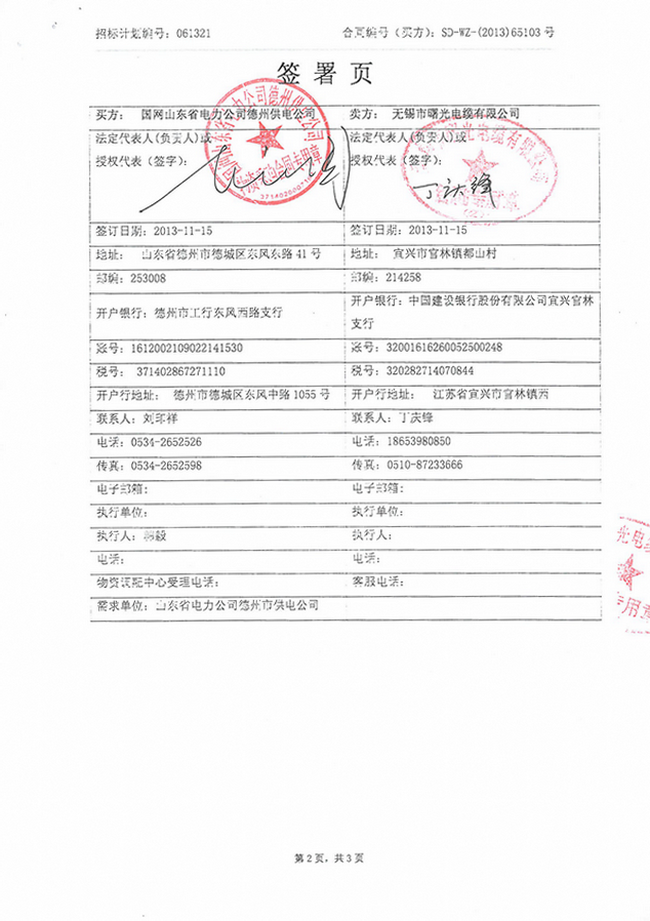 招标计划编号：061321 合同编号（买方）：SD-WZ-(2013)65103号
签署页
买方： 国网山东省电力公司德州供电公司 卖方： 无锡市曙光电缆有限公司
法定代表人(负责人)或 法定代表人(负责人)或
授权代表（签字）： 授权代表（签字）：
丁庆锋
签订日期：2013-11-15 签订日期：2013-11-15
地址： 山东省德州市德城区东风东路41号 地址： 宜兴市官林镇都山村
邮编：253008 邮编：214258
开户银行：德州市工行东风西路支行 开户银行：中国建设银行股份有限公司宜兴官林
支行
账号：1612002109022141530 账号：32001616260052500248
税号： 371402867271110 税号：320282714070844
开户行地址： 德州市德城区东风中路1055号 开户行地址： 江苏省宜兴市官林镇西
联系人：刘环祥 联系人：丁庆锋
电话：0534-2652526 电话：18653980850
传真：0534-2652598 传真：0510-87233666
电子邮箱： 电子邮箱：
执行单位： 执行单位：
执行人：韩毅 执行人：
电话： 电话：
物资调配中心受理电话： 客服电话：
需求单位：山东省电力公司德州市供电公司
光电缆
专用章
第2页，共3页